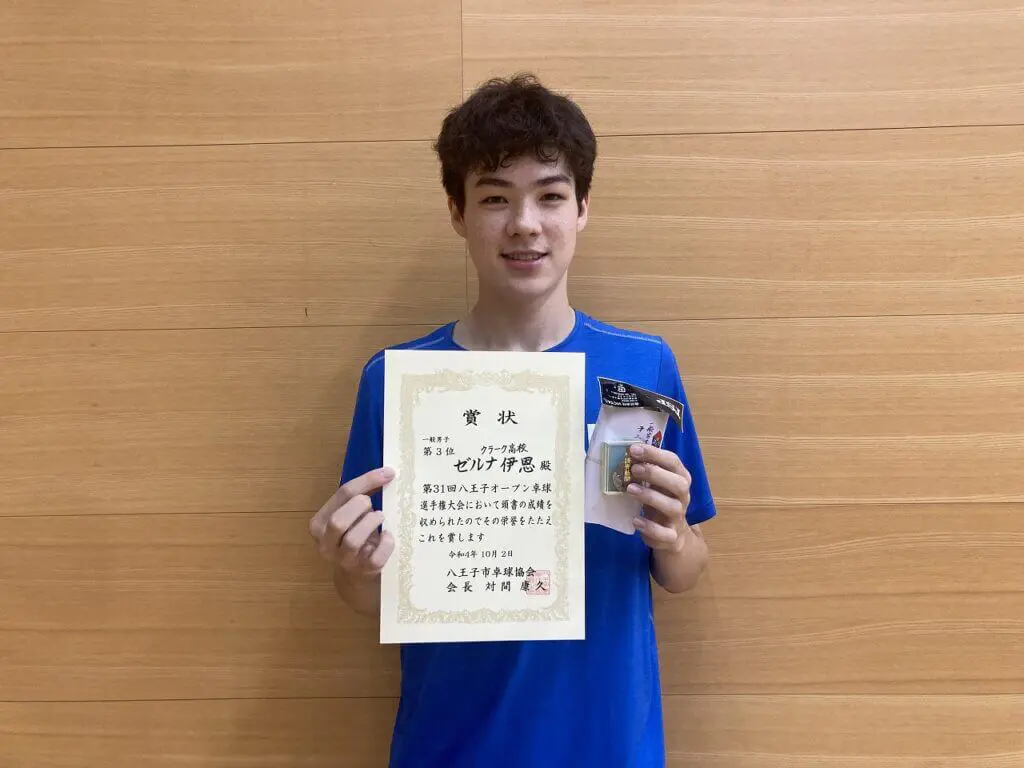 賞状
一般男子
第3位 クラーク高校
ゼルナ伊恩 殿
第31回八王子オープン卓球
選手権大会において頭書の成績を
収められたのでその栄誉をたたえ
これを賞します
令和4年10月2日
八王子市卓球協会
会長 対間 康久